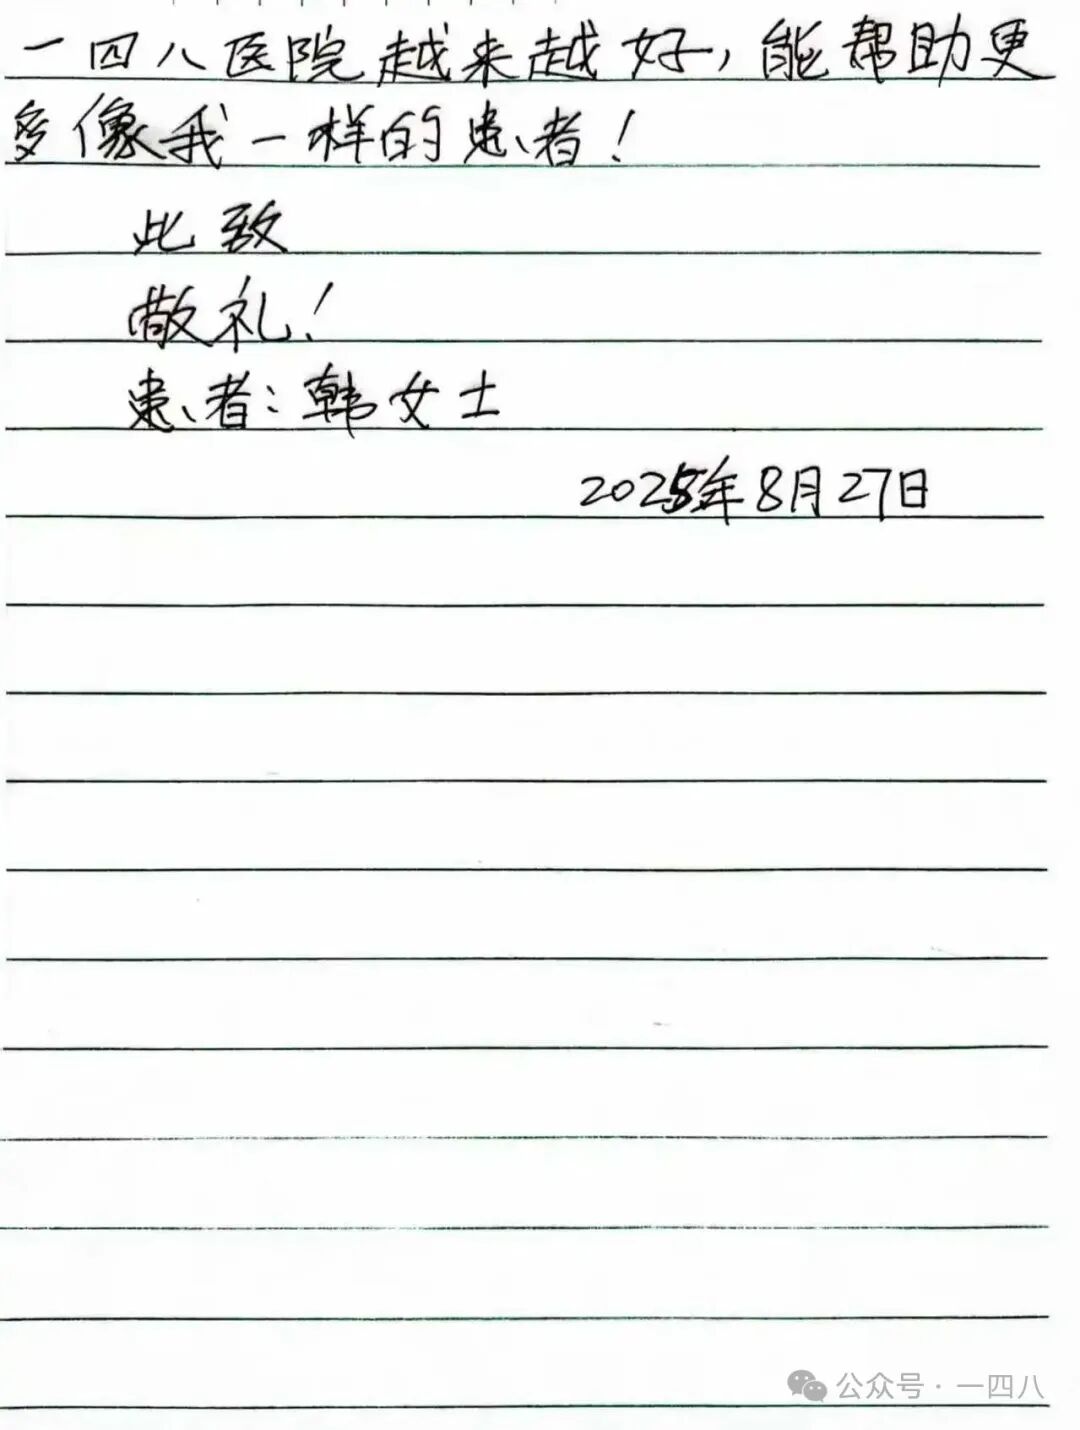 一四八医院越来越好，能帮助更
多像我一样的患者！
此致
敬礼！
患者：韩女士
2025年8月27日
公众号·一四八